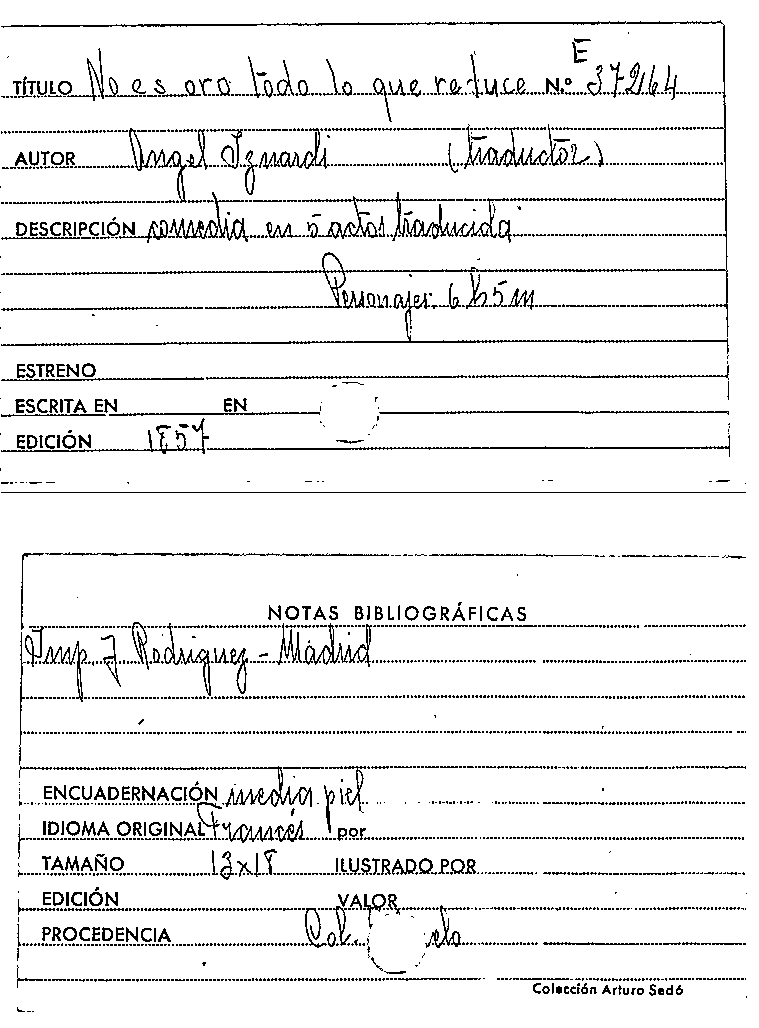 E
TÍTULO No es oro todo lo que reluce N.º 37264
AUTOR Angel Iznardi (traductor)
DESCRIPCIÓN comedia en 5 actos traducida
Personajes: 6 h 5 m
ESTRENO
ESCRITA EN EN
EDICIÓN 1857
NOTAS BIBLIOGRÁFICAS
Imp. J Rodriguez - Madrid
ENCUADERNACIÓN media piel
IDIOMA ORIGINAL Francés por
TAMAÑO 13x18 ILUSTRADO POR
EDICIÓN VALOR
PROCEDENCIA Col.
Colección Arturo Sedó